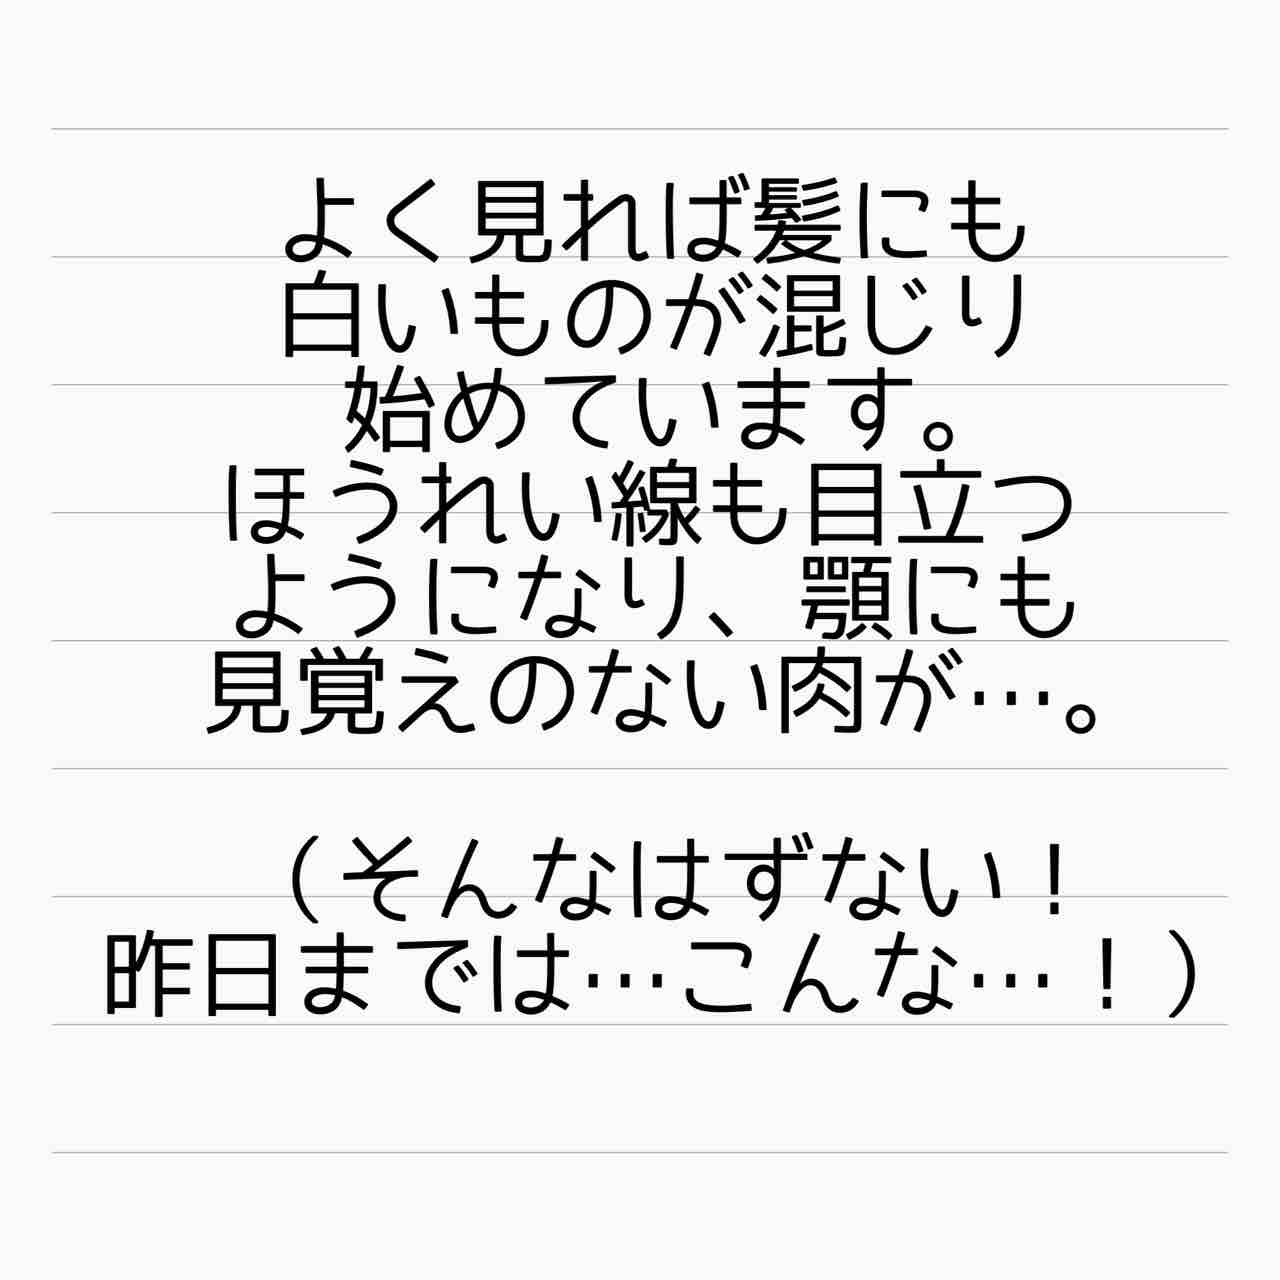 よく見れば髪にも
白いものが混じり
始めています。
ほうれい線も目立つ
ようになり、顎にも
見覚えのない肉が…。
（そんなはずない！
昨日までは…こんな…！）